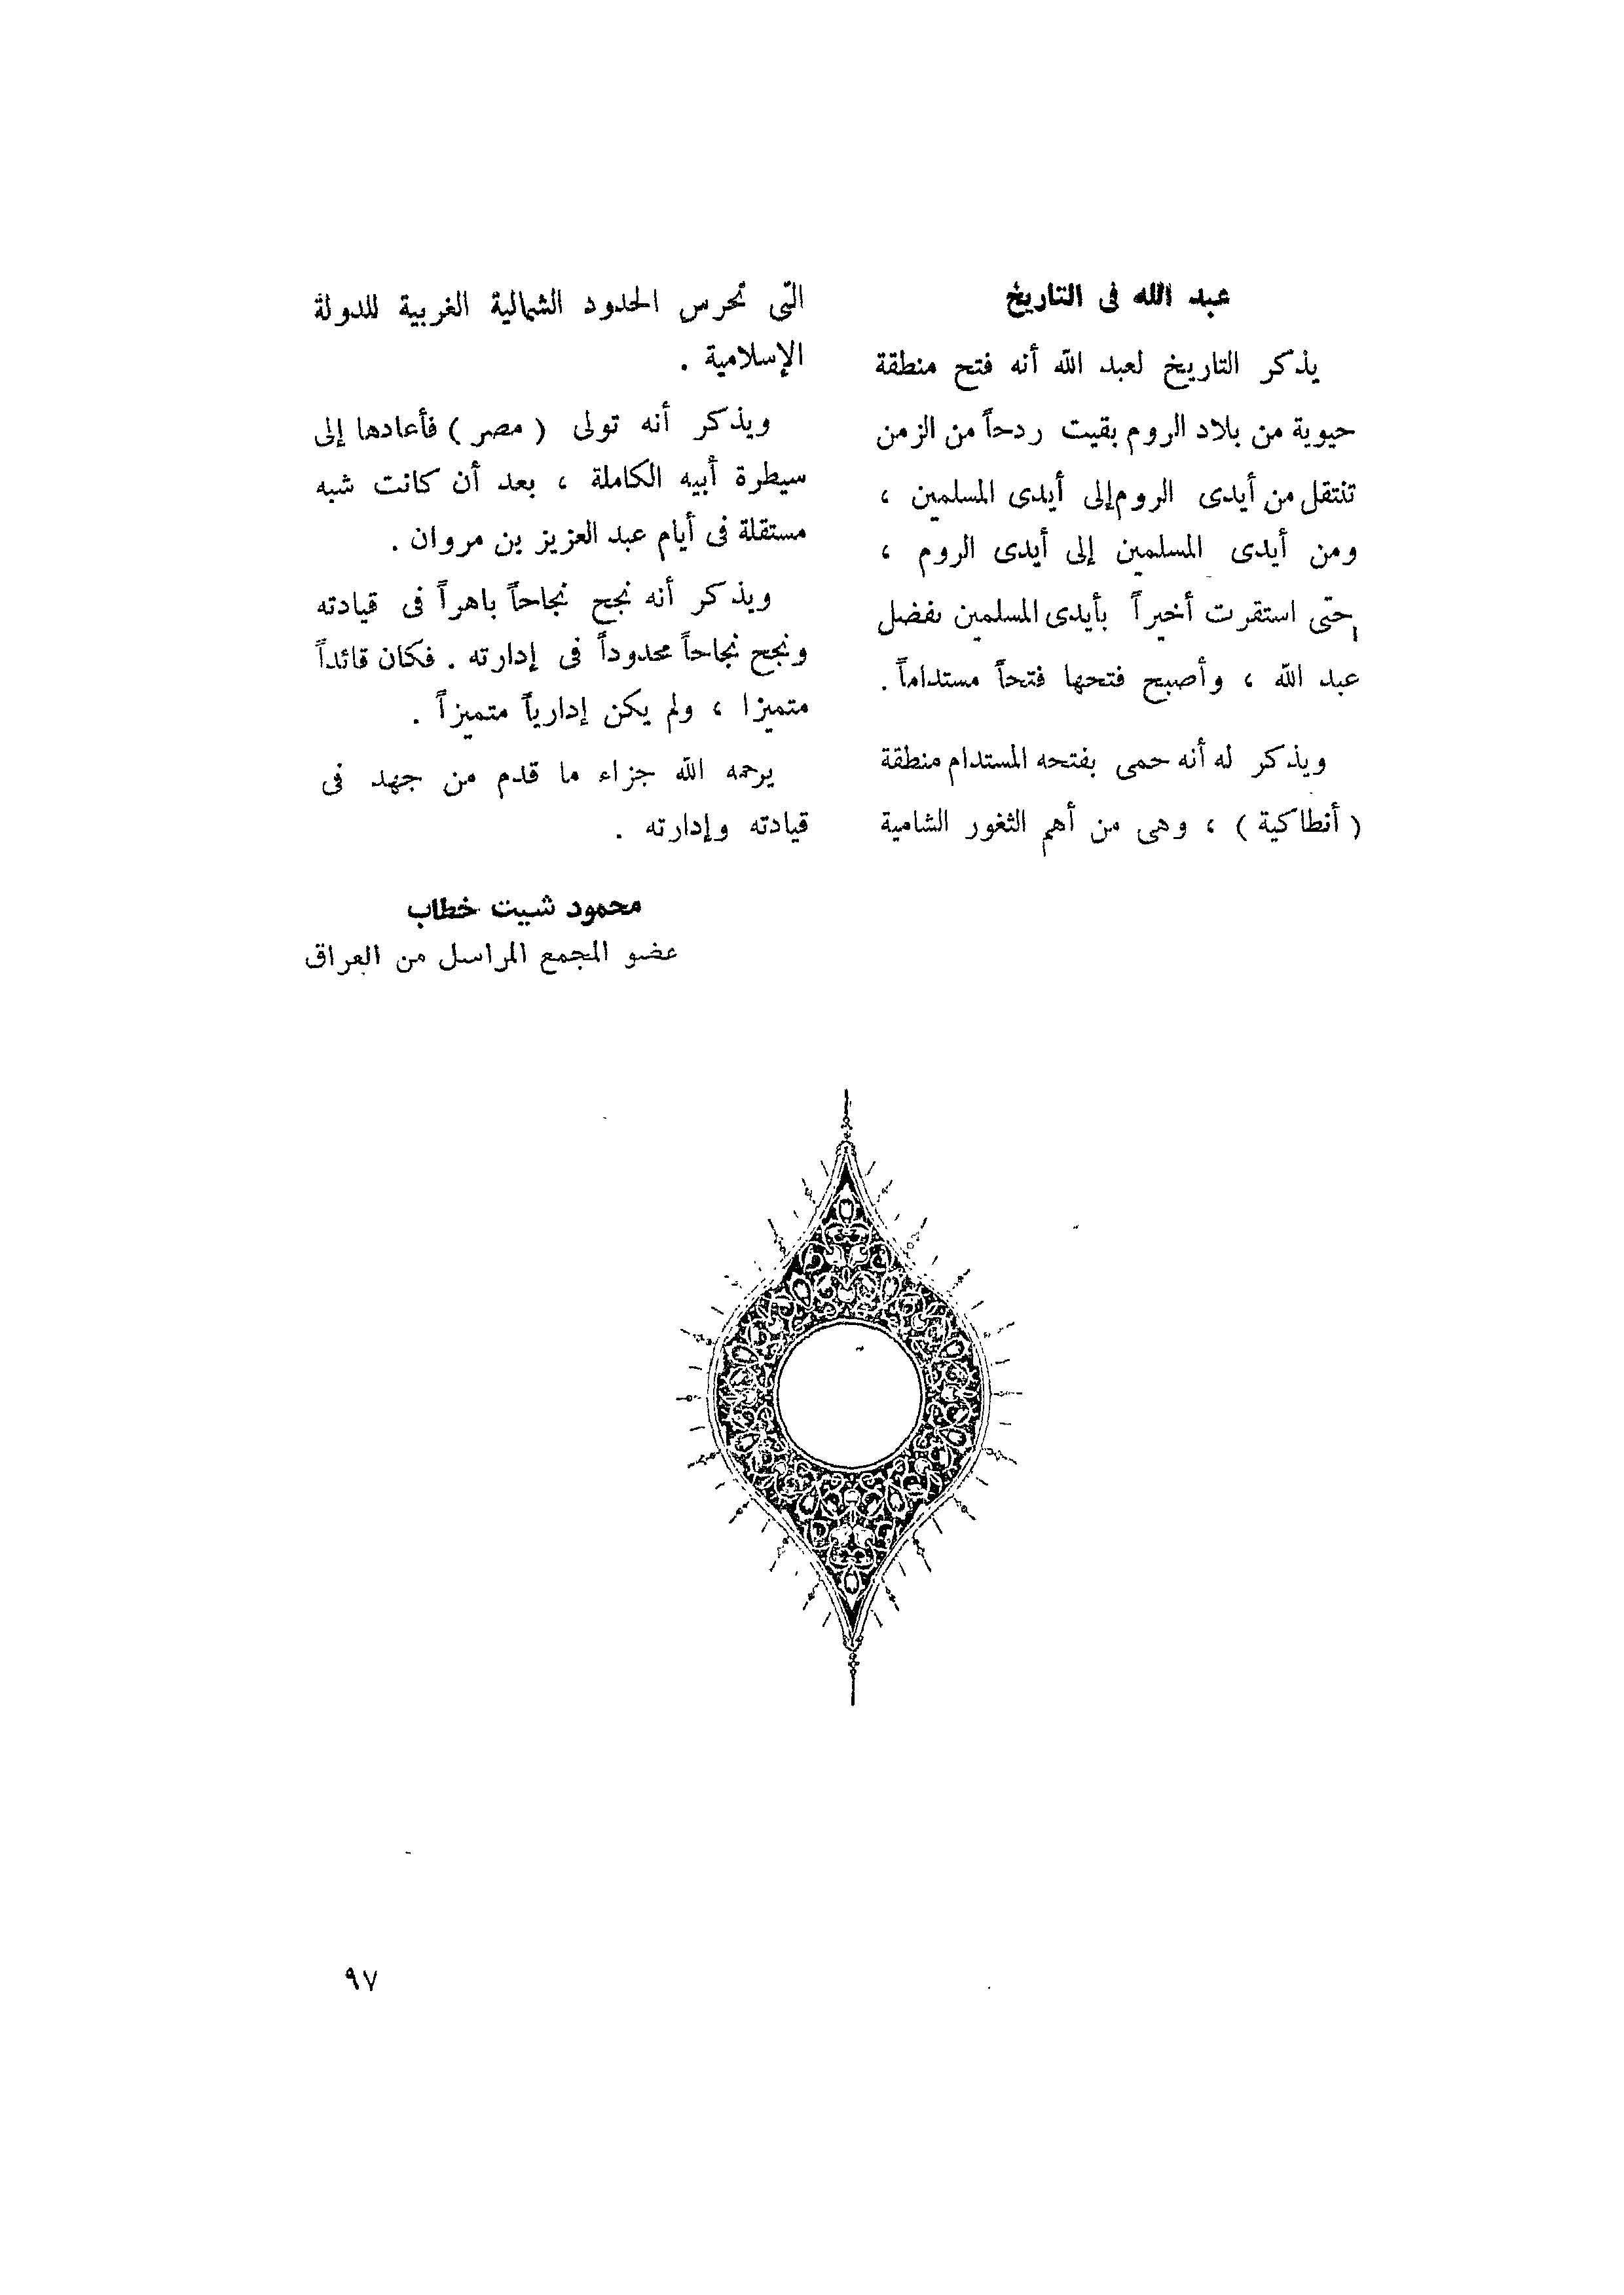 عبد الله فى التاريخ
يذكر التاريخ لعبد الله أنه فتح منطقة
حيوية من بلاد الروم بقيت ردحاً من الزمن
تنتقل من أيدى الروم إلى أيدى المسلمين ،
ومن أيدى المسلمين إلى أيدى الروم ،
حتى استقرت أخيراً بأيدى المسلمين بفضل
عبد الله ، وأصبح فتحها فتحاً مستداماً .
ويذكر له أنه حمى بفتحه المستدام منطقة
( أنطاكية ) ، وهى من أهم الثغور الشامية
التى تحرس الحدود الشمالية الغربية للدولة
الإسلامية .
ويذكر أنه تولى ( مصر ) فأعادها إلى
سيطرة أبيه الكاملة ، بعد أن كانت شبه
مستقلة فى أيام عبد العزيز بن مروان .
ويذكر أنه نجح نجاحاً باهراً فى قيادته
ونجح نجاحاً محدوداً فى إدارته . فكان قائداً
متميزا ، ولم يكن إدارياً متميزاً .
يرحمه الله جزاء ما قدم من جهد فى
قيادته وإدارته .
محمود شيت خطاب
عضو المجمع المراسل من العراق
٩٧